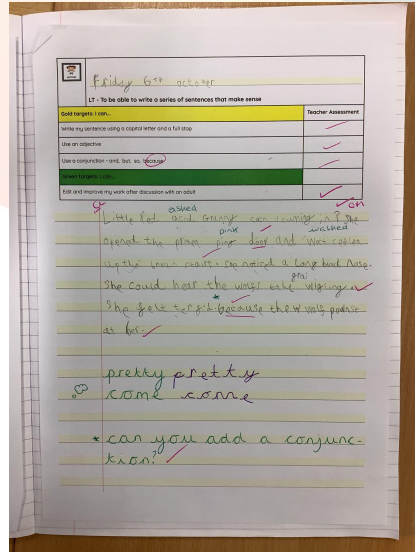 Friday 6th october
LT - To be able to write a series of sentences that make sense
Gold targets: I can... Teacher Assessment
Write my sentence using a capital letter and a full stop
Use an adjective
Use a conjunction - and, but, so, because
Green targets: I can...
Edit and improve my work after discussion with an adult
asked
Little Red and Granny can I in? She
pink walked
opened the door and
up the stairs. She noticed a long Nose.
She could hear the
She felt because the wolf
at her.
pretty pretty
come come
* can you add a conjunc-
tion?